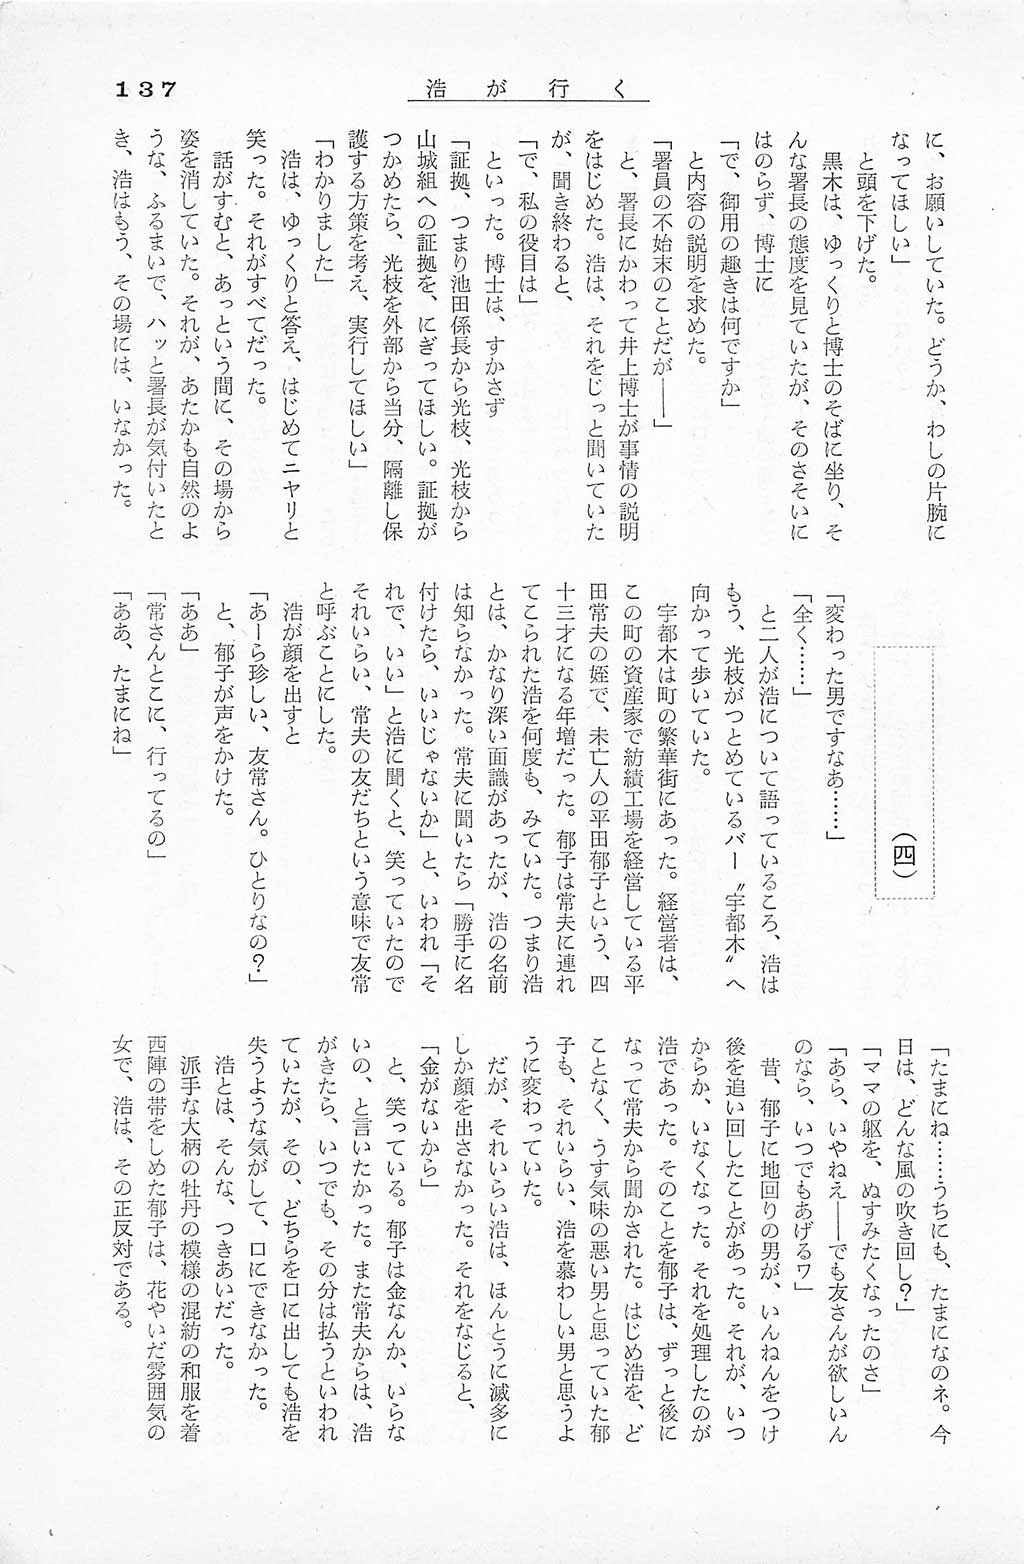 137
浩が行く
に、お願いしていた。どうか、わしの片腕に
なってほしい」
と頭を下げた。
黒木は、ゆっくりと博士のそばに坐り、そ
んな署長の態度を見ていたが、そのさそいに
はのらず、博士に
「で、御用の趣きは何ですか」
と内容の説明を求めた。
「署員の不始末のことだが――」
と、署長にかわって井上博士が事情の説明
をはじめた。浩は、それをじっと聞いていた
が、聞き終わると、
「で、私の役目は」
といった。博士は、すかさず
「証拠、つまり池田係長から光枝、光枝から
山城組への証拠を、にぎってほしい。証拠が
つかめたら、光枝を外部から当分、隔離し保
護する方策を考え、実行してほしい」
「わかりました」
浩は、ゆっくりと答え、はじめてニヤリと
笑った。それがすべてだった。
話がすむと、あっという間に、その場から
姿を消していた。それが、あたかも自然のよ
うな、ふるまいで、ハッと署長が気付いたと
き、浩はもう、その場には、いなかった。
(四)
「変わった男ですなあ……」
「全く……」
と二人が浩について語っているころ、浩は
もう、光枝がつとめているバー〝宇都木〟へ
向かって歩いていた。
宇都木は町の繁華街にあった。経営者は、
この町の資産家で紡績工場を経営している平
田常夫の姪で、未亡人の平田郁子という、四
十三才になる年増だった。郁子は常夫に連れ
てこられた浩を何度も、みていた。つまり浩
とは、かなり深い面識があったが、浩の名前
は知らなかった。常夫に聞いたら「勝手に名
付けたら、いいじゃないか」と、いわれ「そ
れで、いい」と浩に聞くと、笑っていたので
それいらい、常夫の友だちという意味で友常
と呼ぶことにした。
浩が顔を出すと
「あーら珍しい、友常さん。ひとりなの?」
と、郁子が声をかけた。
「ああ」
「常さんとこに、行ってるの」
「ああ、たまにね」
「たまにね……うちにも、たまになのネ。今
日は、どんな風の吹き回し?」
「ママの躯を、ぬすみたくなったのさ」
「あら、いやねえ――でも友さんが欲しいん
のなら、いつでもあげるワ」
昔、郁子に地回りの男が、いんねんをつけ
後を追い回したことがあった。それが、いつ
からか、いなくなった。それを処理したのが
浩であった。そのことを郁子は、ずっと後に
なって常夫から聞かされた。はじめ浩を、ど
ことなく、うす気味の悪い男と思っていた郁
子も、それいらい、浩を慕わしい男と思うよ
うに変わっていた。
だが、それいらい浩は、ほんとうに滅多に
しか顔を出さなかった。それをなじると、
「金がないから」
と、笑っている。郁子は金なんか、いらな
いの、と言いたかった。また常夫からは、浩
がきたら、いつでも、その分は払うといわれ
ていたが、その、どちらを口に出しても浩を
失うような気がして、口にできなかった。
浩とは、そんな、つきあいだった。
派手な大柄の牡丹の模様の混紡の和服を着
西陣の帯をしめた郁子は、花やいだ雰囲気の
女で、浩は、その正反対である。